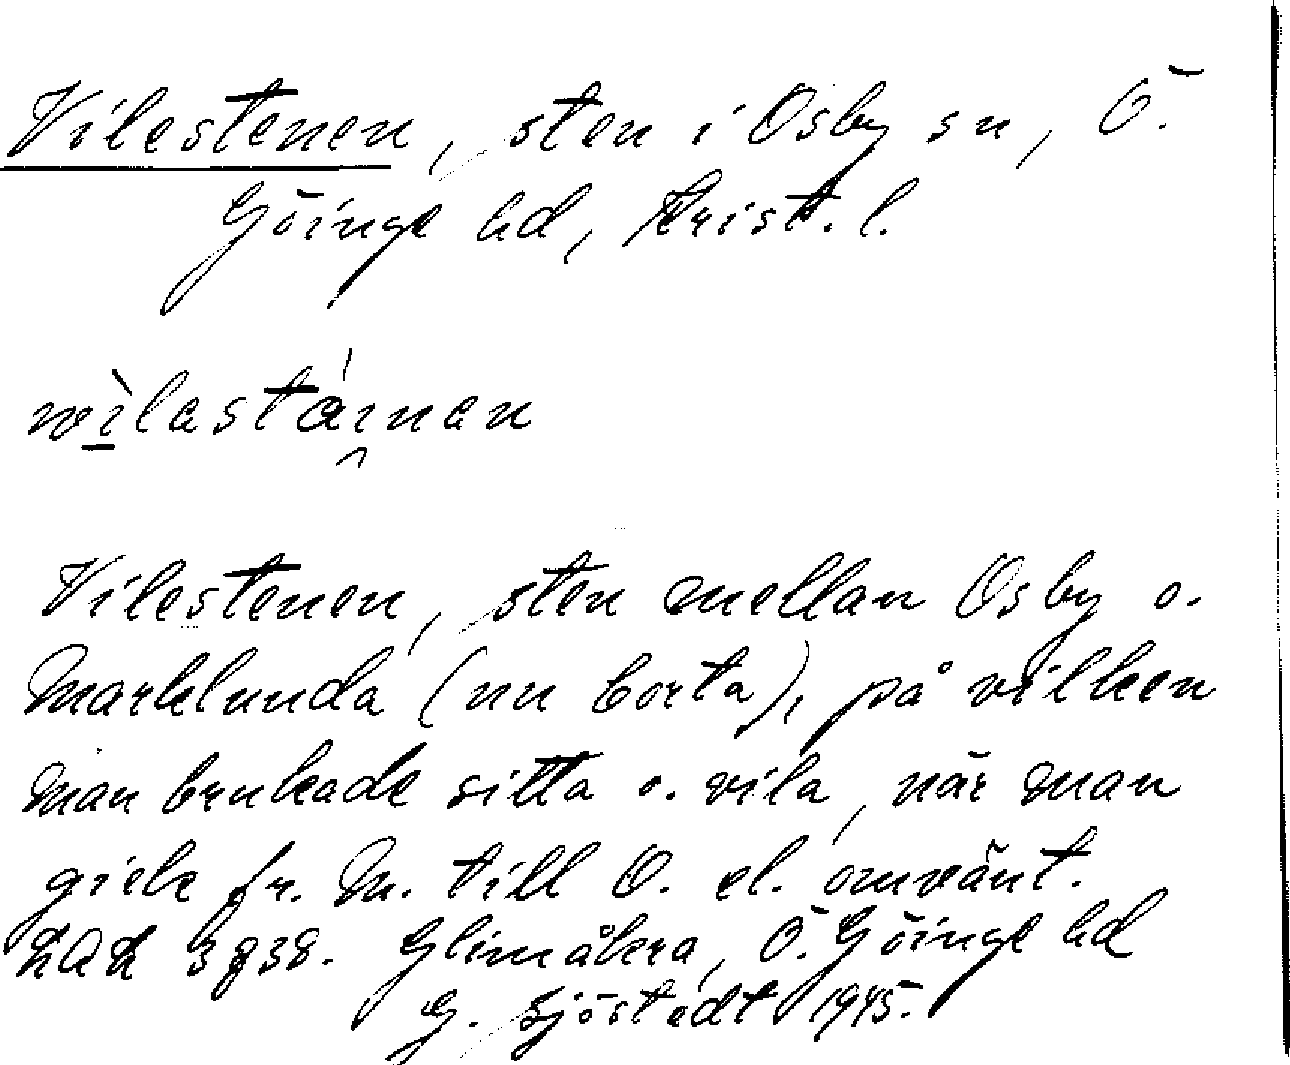 Vilestenen, sten i Osby sn, Ö.
Göinge hd, Krist. l.
wìlastáinan
Vilestenen, sten mellan Osby o.
Marklunda (nu borta), på vilken
man brukade sitta o. vila, när man
gick fr. M. till O. el. omvänt.
LAL Glimåkra, Ö. Göinge hd
G. Sjöstedt 1945.